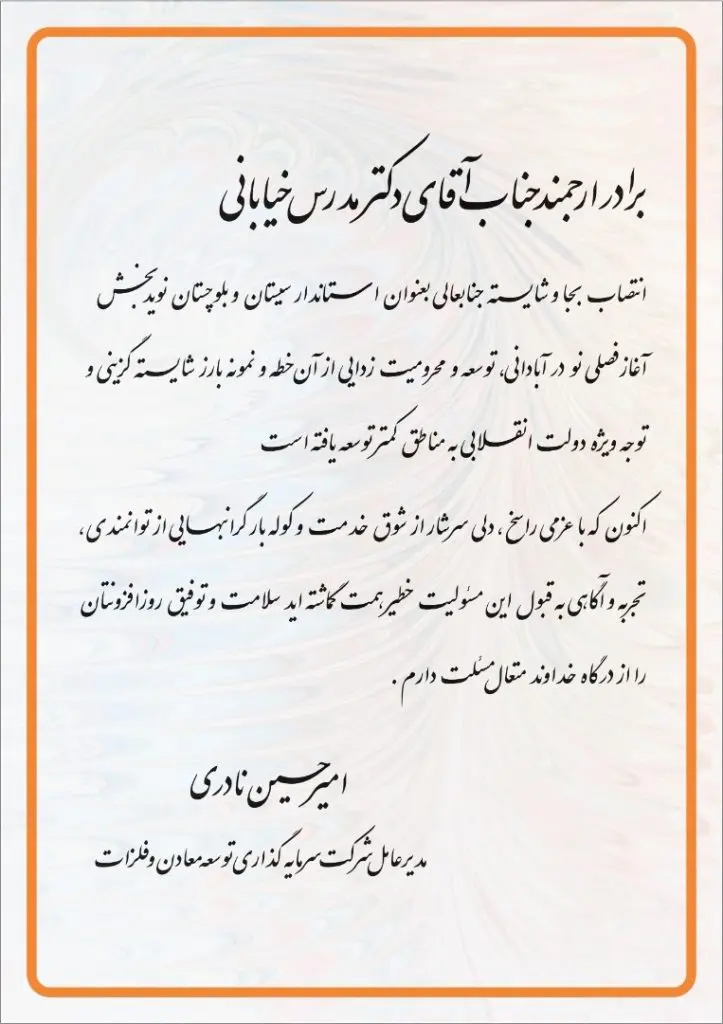 برادر ارجمند جناب آقای دکتر مدرس خیابانی
انتصاب بجا و شایسته جنابعالی بعنوان استاندار سیستان و بلوچستان نوید بخش
آغاز فصلی نو در آبادانی، توسعه و محرومیت زدایی از آن خطه و نمونه بارز شایسته گزینی و
توجه ویژه دولت انقلابی به مناطق کمتر توسعه یافته است
اکنون که با عزمی راسخ ، دلی سرشار از شوق خدمت و کوله بار گرانبهایی از توانمندی،
تجربه و آگاهی به قبول این مسئولیت خطیر همت گماشته اید سلامت و توفیق روزافزونتان
را از درگاه خداوند متعال مسئلت دارم .
امیرحسین نادری
مدیرعامل شرکت سرمایه گذاری توسعه معادن و فلزات